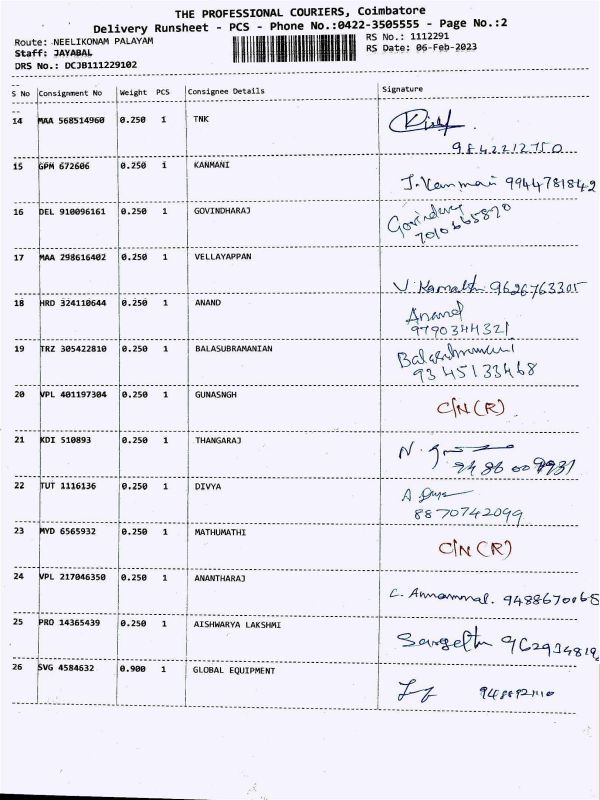 THE PROFESSIONAL COURIERS, Coimbatore
Delivery Runsheet - PCS - Phone No.:0422-3505555 - Page No.:2
Route: NEELIKONAM PALAYAM
RS No.: 1112291
Staff: JAYABAL
RS Date: 06-Feb-2023
DRS No.: DCJB111229102
S No Consignment No Weight PCS Consignee Details Signature
14 MAA 568514960 0.250 1 TNK
9842212750
15 GPM 672606 0.250 1 KANMANI
J. Kanmani 9944781842
16 DEL 910096161 0.250 1 GOVINDHARAJ
Govindaraj
7010665870
17 MAA 298616402 0.250 1 VELLAYAPPAN
V. Kamalth 9626763305
18 HRD 324110644 0.250 1 ANAND
Anand
9790344321
19 TRZ 305422810 0.250 1 BALASUBRAMANIAN
Balasubramani
9345133468
20 VPL 401197304 0.250 1 GUNASNGH
C/N (R)
21 KDI 510893 0.250 1 THANGARAJ
N.
9486009931
22 TUT 1116136 0.250 1 DIVYA
A Divya
8870742099
23 MYD 6565932 0.250 1 MATHUMATHI
C/N (R)
24 VPL 217046350 0.250 1 ANANTHARAJ
C. Annammal. 9488670065
25 PRO 14365439 0.250 1 AISHWARYA LAKSHMI
Sangeeth 962934819
26 SVG 4584632 0.900 1 GLOBAL EQUIPMENT